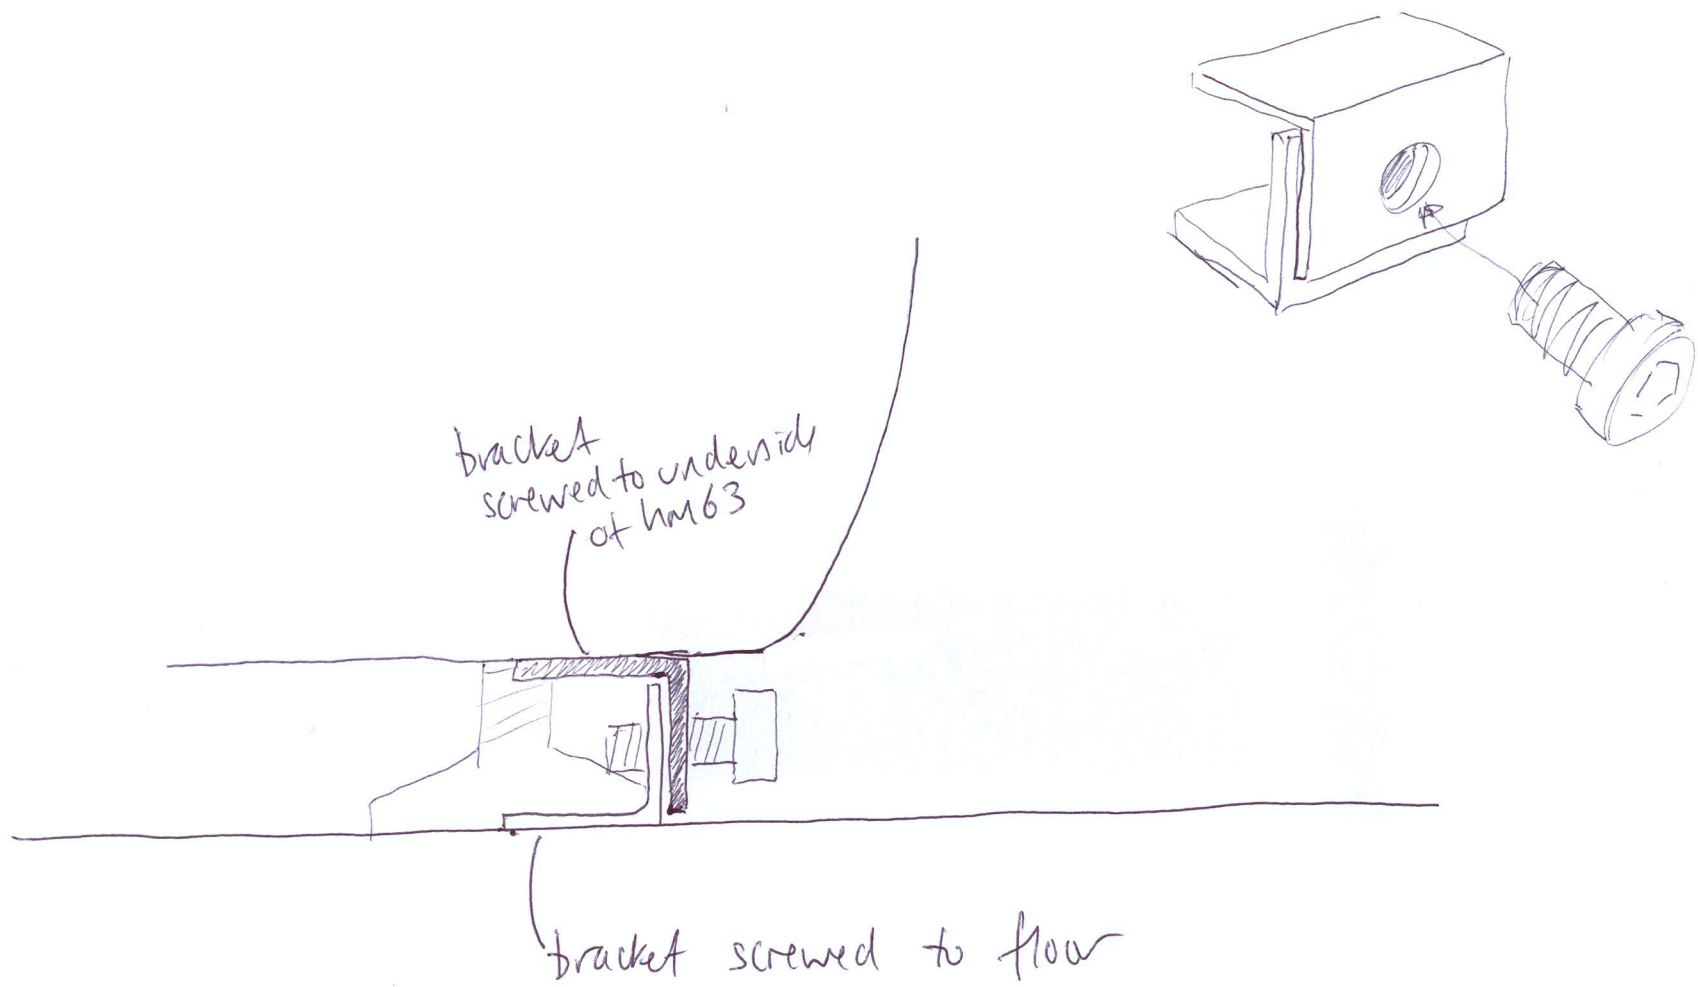 bracket
screwed to underside
of hm63
bracket screwed to floor